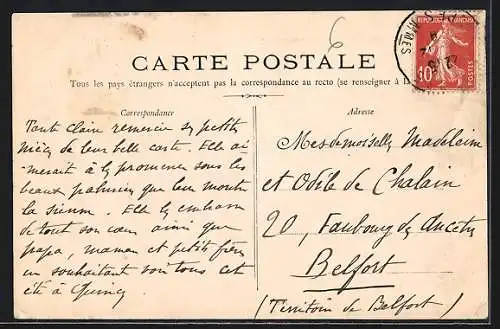 CARTE POSTALE
Tous les pays étrangers n'acceptent pas la correspondance au recto (se renseigner à
Correspondance
Tante Claire remercie ses petites
nièces de leur belle carte. Elle ai-
merait à les promener sous les
beaux palmiers que leur montre
la sienne. Elle les embrasse
de tout son cœur ainsi que
papa, maman et petits frères
en souhaitant voir tous cet
été à Quincy
Adresse
Mesdemoiselles Madeleine
et Odile de Chalain
20, Faubourg des Ancêtres
Belfort
(Territoire de Belfort)
REPUBLIQUE FRANÇAISE
10c
POSTES
6